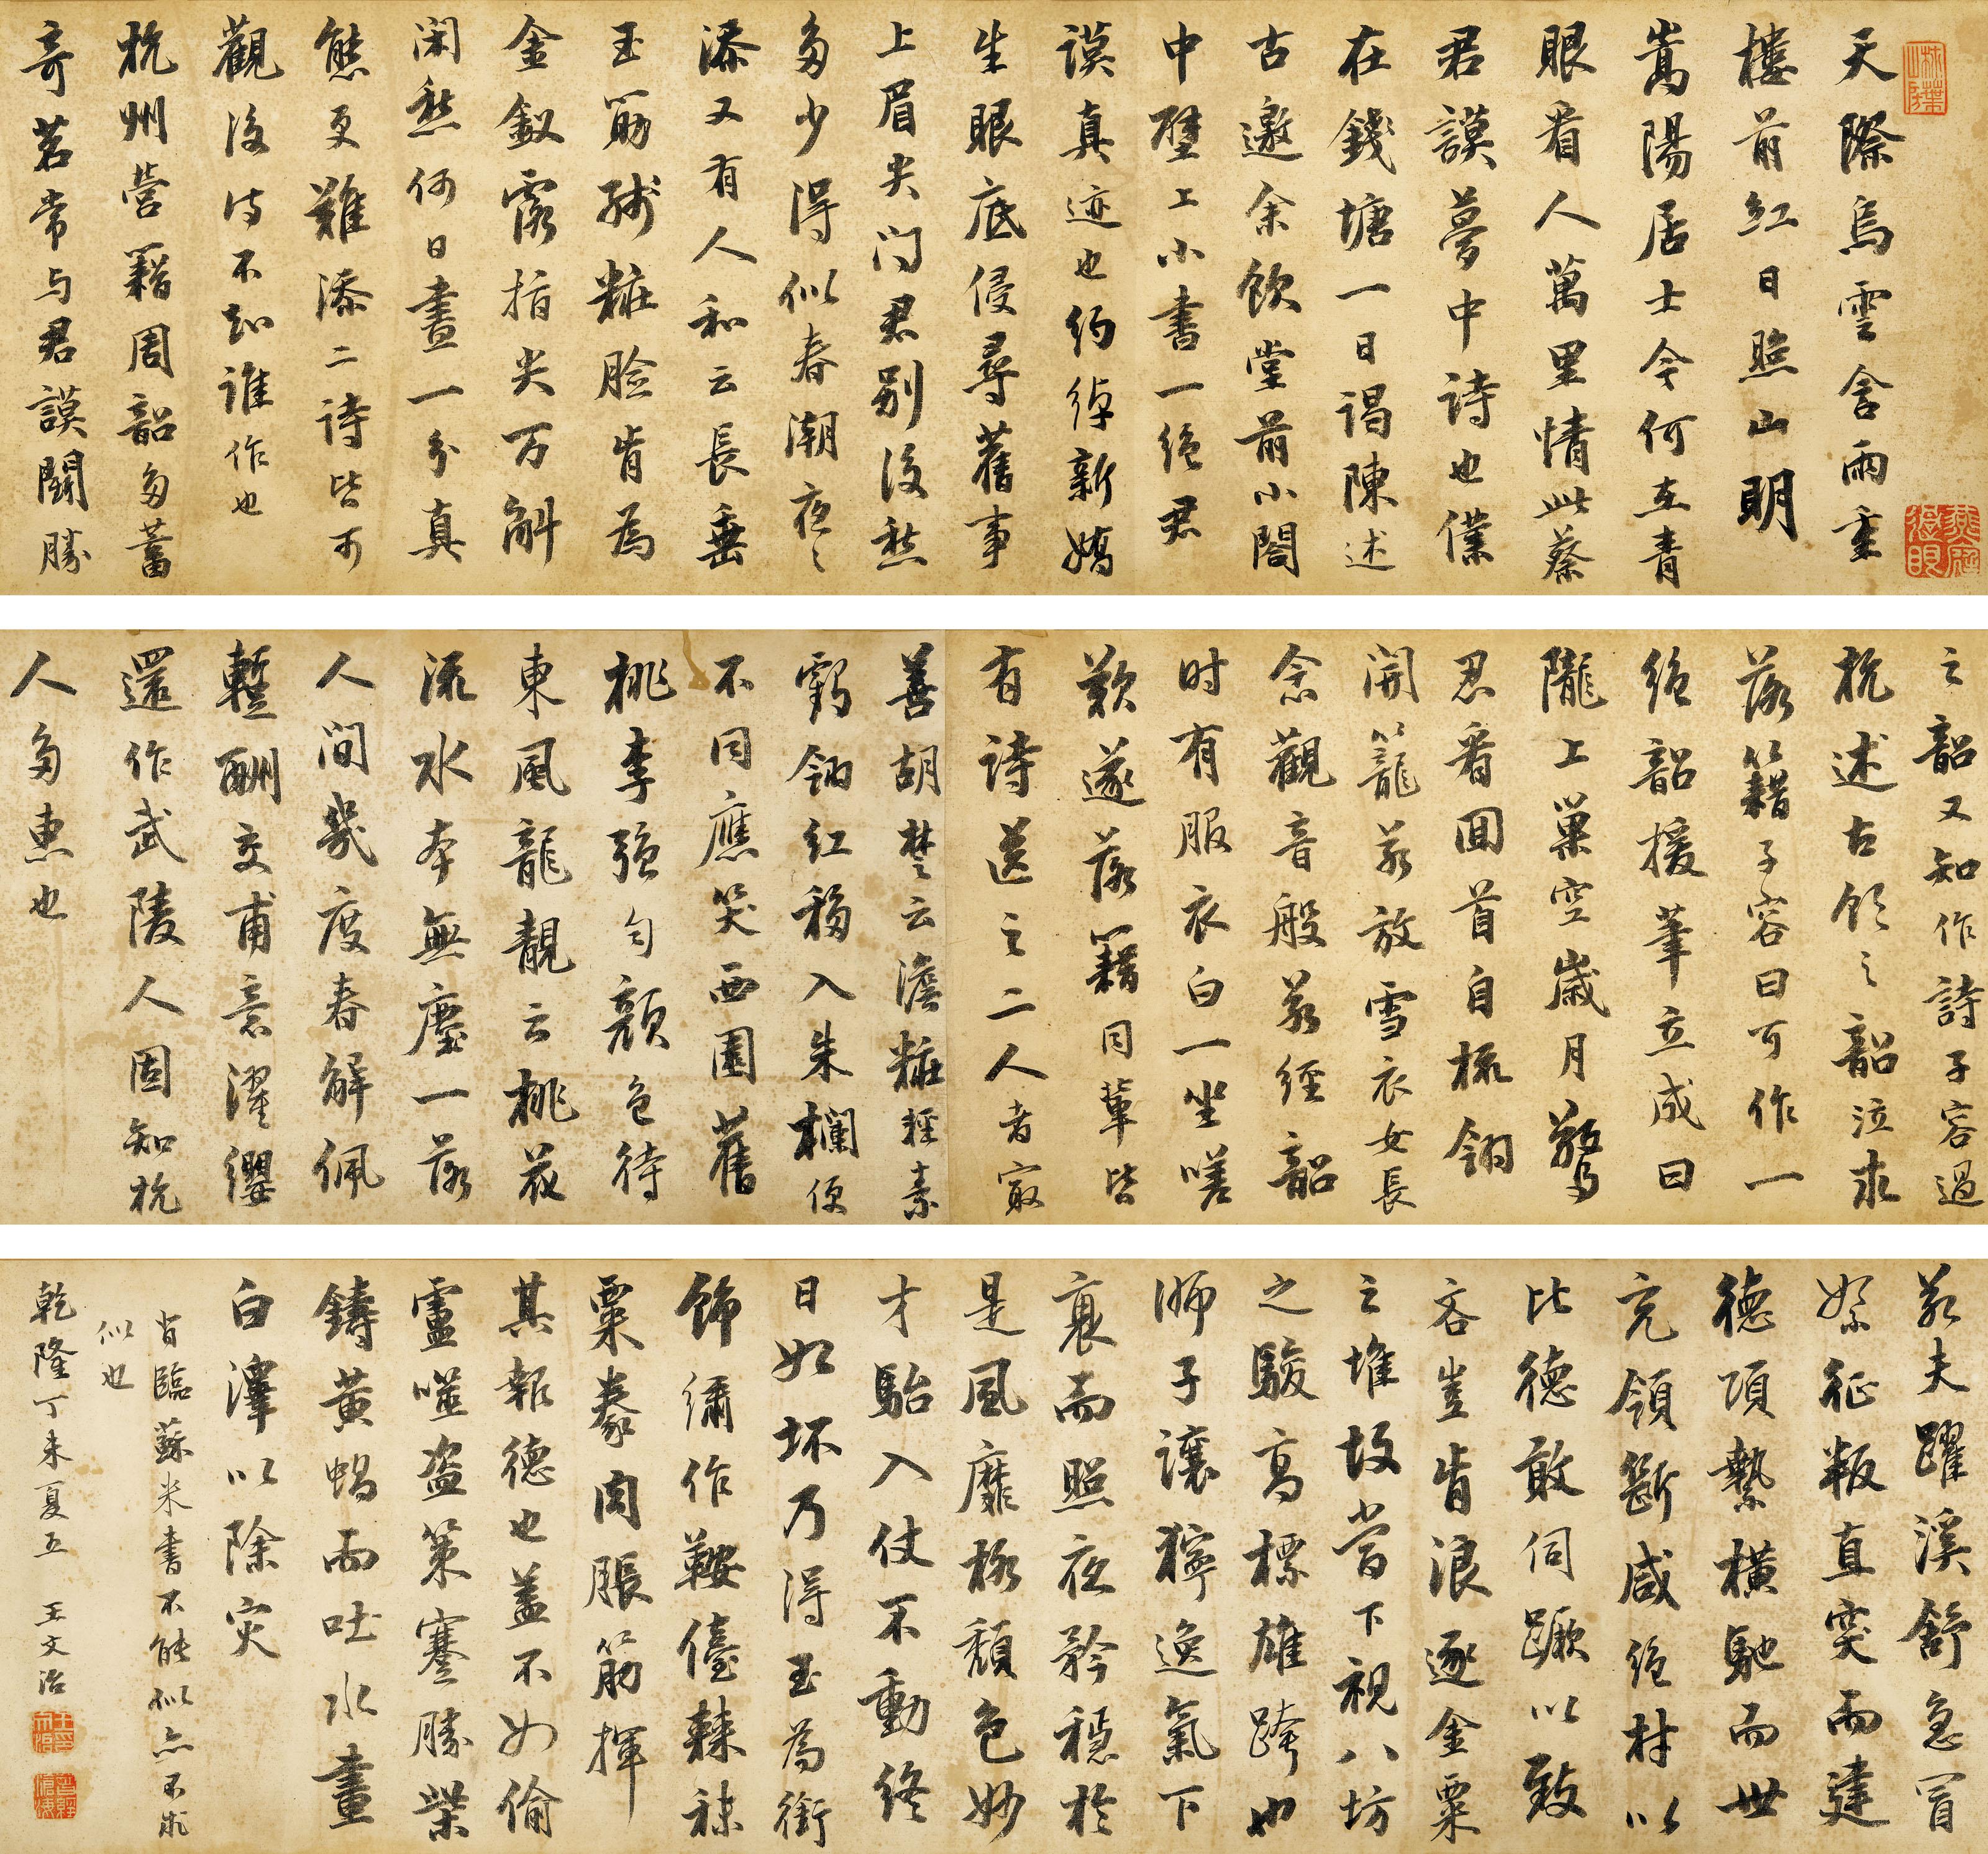 天際烏雲含雨重
樓前紅日照山明
嵩陽居士今何在青
眼看人萬里情此蔡
君謨夢中詩也僕
在錢塘一日謁陳述
古邀余飲堂前小閣
中壁上小書一絕君
謨真迹也約綽新嬌
生眼底侵尋舊事
上眉尖問君別後愁
多少得似春潮夜〻
添又有人和云長垂
玉筋殘粧臉肯為
金釵露指尖万斛
閑愁何日盡一分真
態更難添二詩皆可
觀後詩不知誰作也
杭州營籍周韶多蓄
奇茗常与君謨鬭勝
之韶又知作詩子容過
杭述古飲之韶泣求
落籍子容曰可作一
絕韶援筆立成曰
隴上巢空歲月驚
忍看回首自梳翎
開籠若放雪衣女長
念觀音般若經韶
时有服衣白一坐嗟
歎遂落籍同輩皆
有詩送之二人者最
善胡楚云澹粧輕素
鶴翎紅移入朱欄便
不同應笑西園舊
桃李強勻顏色待
東風龍靚云桃花
流水本無塵一落
人間幾度春解佩
暫酬交甫意濯纓
還作武陵人固知杭
人多惠也
若夫躍溪舒急冒
絮征叛直突而建
德項縶橫馳而世
充領斷咸絕材以
比德敢伺蹶以致
吝豈肯浪逐金粟
之堆故當下視八坊
之駿高標雄跨也
師子讓獰逸氣下
衰而照夜矜穩於
是風靡格頹色妙
才駘入仗不動終
日如坏乃得玉為銜
飾繡作鞍儓棘秣
粟豢肉脹筋揮
其報德也蓋不如偷
盧噬盜策蹇勝柴
鑄黃蝎而吐水畫
白澤以除灾
肯臨蘇米書不能似亦不求
似也
乾隆丁未夏五 王文治